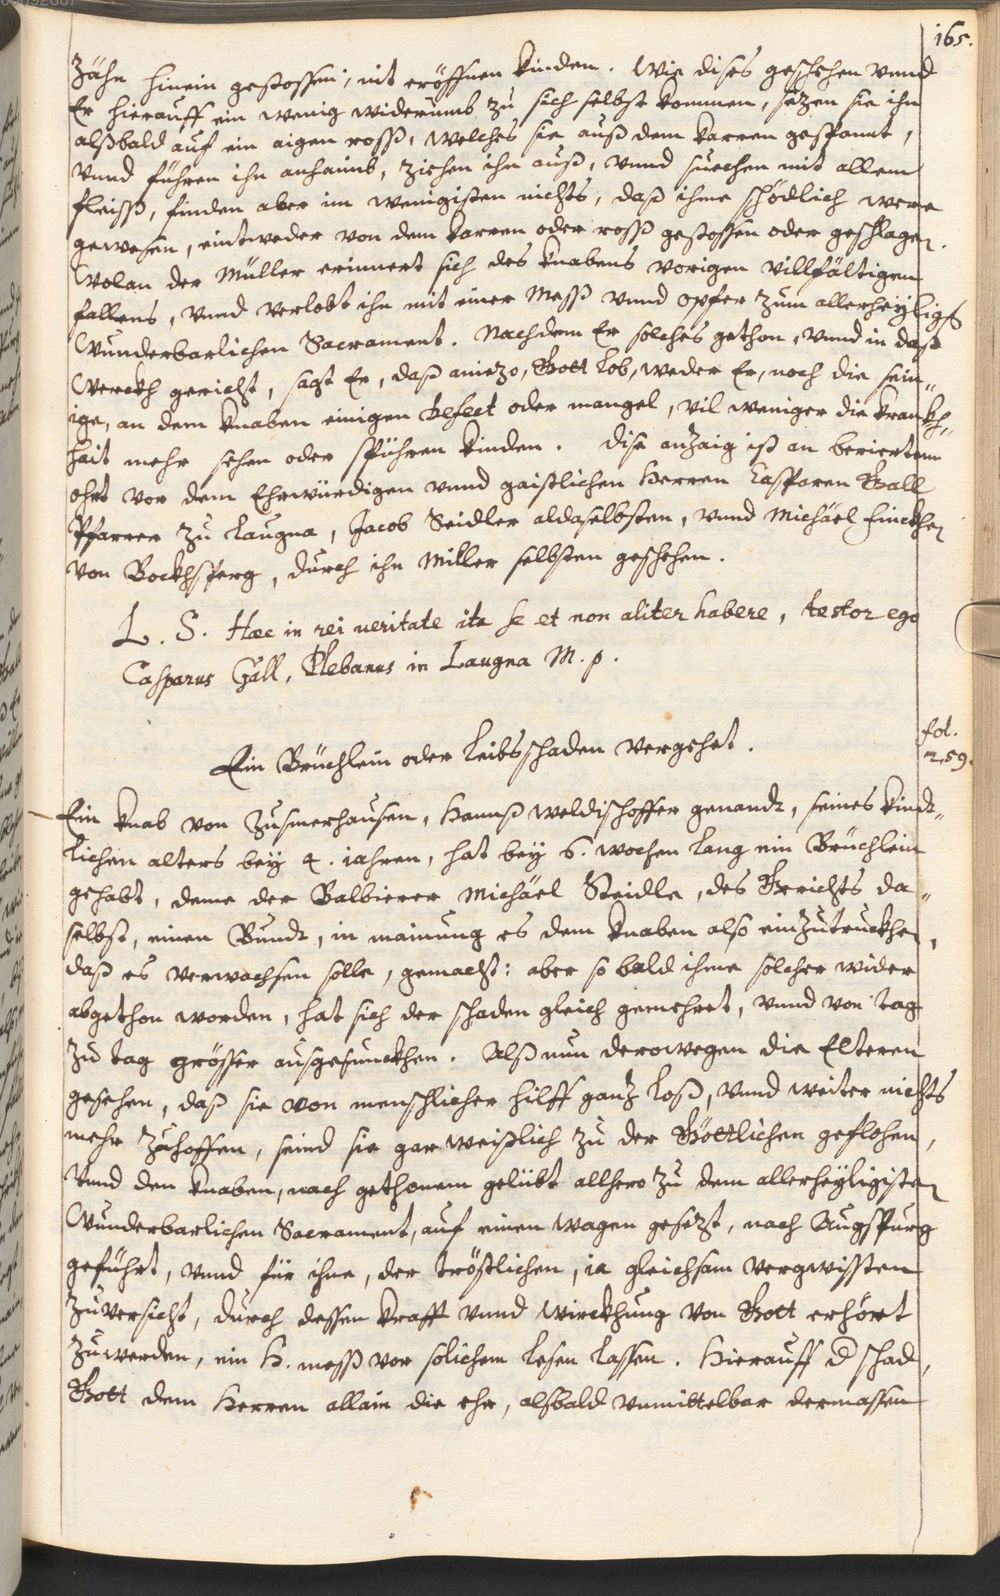 165.
Zähn hinein gestossen, nit eröffnen kinden. Wie dises geschehen vnnd
Er hierauff ein wenig widerumb zu sich selbst kommen, sezen sie ihn
alßbald auf ein aigen roß, welches sie auß dem karren gespannt,
vnnd führen ihn anhaimb, ziehen ihn auß, vnnd suechen mit allem
fleiß, finden aber im wenigisten nichts, daß ihme schödlich were
gewesen, eintweder von dem karren oder roß gestossen oder geschlagen.
Wolan der Müller erinnert sich des knabens vorigen villfältigen
fallens, vnnd verlobt ihn mit einer Meß vnnd opfer zum allerheyligst
Wunderbarlichen Sacrament. Nachdem Er solches gethon, vnnd in daß
Werckh gericht, sagt Er, daß aniezo, Gott lob, weder Er, noch die sein„
ige, an dem knaben einigen defect oder mangel, vil weniger die krankh„
hait mehr sehen oder spühren kinden. Dise anzaig ist an beriertem
ohrt vor dem Ehrwürdigen vnnd gaistlichen Herren Casparen Gall
Pfarrer zu Laugna, Jacob Seidler aldaselbsten, vnnd Michäel Finckhen
von Bockhsperg, durch ihn Miller selbsten geschehen.
L. S. Hæc in rei ueritate ita se et non aliter habere, testor ego
Casparus Gall, Plebanus in Laugna M. p.
Ein Brüchlein oder leibsschaden vergehet.
fol.
259.
Ein knab von Zusmerhausen, Hannß Weldishoffer genandt, seines kindt„
lichen alters bey 4. iahren, hat bey 6. wochen lang ein Brüchlein
gehabt, deme der Balbierer Michäel Steidle, des Gerichts da„
selbst, einen Bundt, in mainung es dem knaben also einzutruckhen,
daß es verwachsen solle, gemacht: aber so bald ihme solcher wider
abgethon worden, hat sich der schaden gleich gemehret, vnnd von tag
zu tag grösser ausgesunckhen. Alß nun derowegen die Elteren
gesehen, daß sie von menschlicher hilff ganz loß, vnnd weiter nichts
mehr zuhoffen, seind sie gar weißlich zu der Göttlichen geflohen,
vnnd den knaben, nach gethonem gelübt allhero zu dem allerheyligisten
Wunderbarlichen Sacrament, auf einen wagen gesezt, nach Augspurg
geführt, vnnd für ihne, der tröstlichen, ia gleichsam vergwissten
Zuversicht, durch dessen krafft vnnd wirckhung von Gott erhört
zuwerden, ein H. meß vor solichem lesen lassen. Hierauff d schad,
Gott dem Herren allain die ehr, alsbald vnmittelbar dermassen